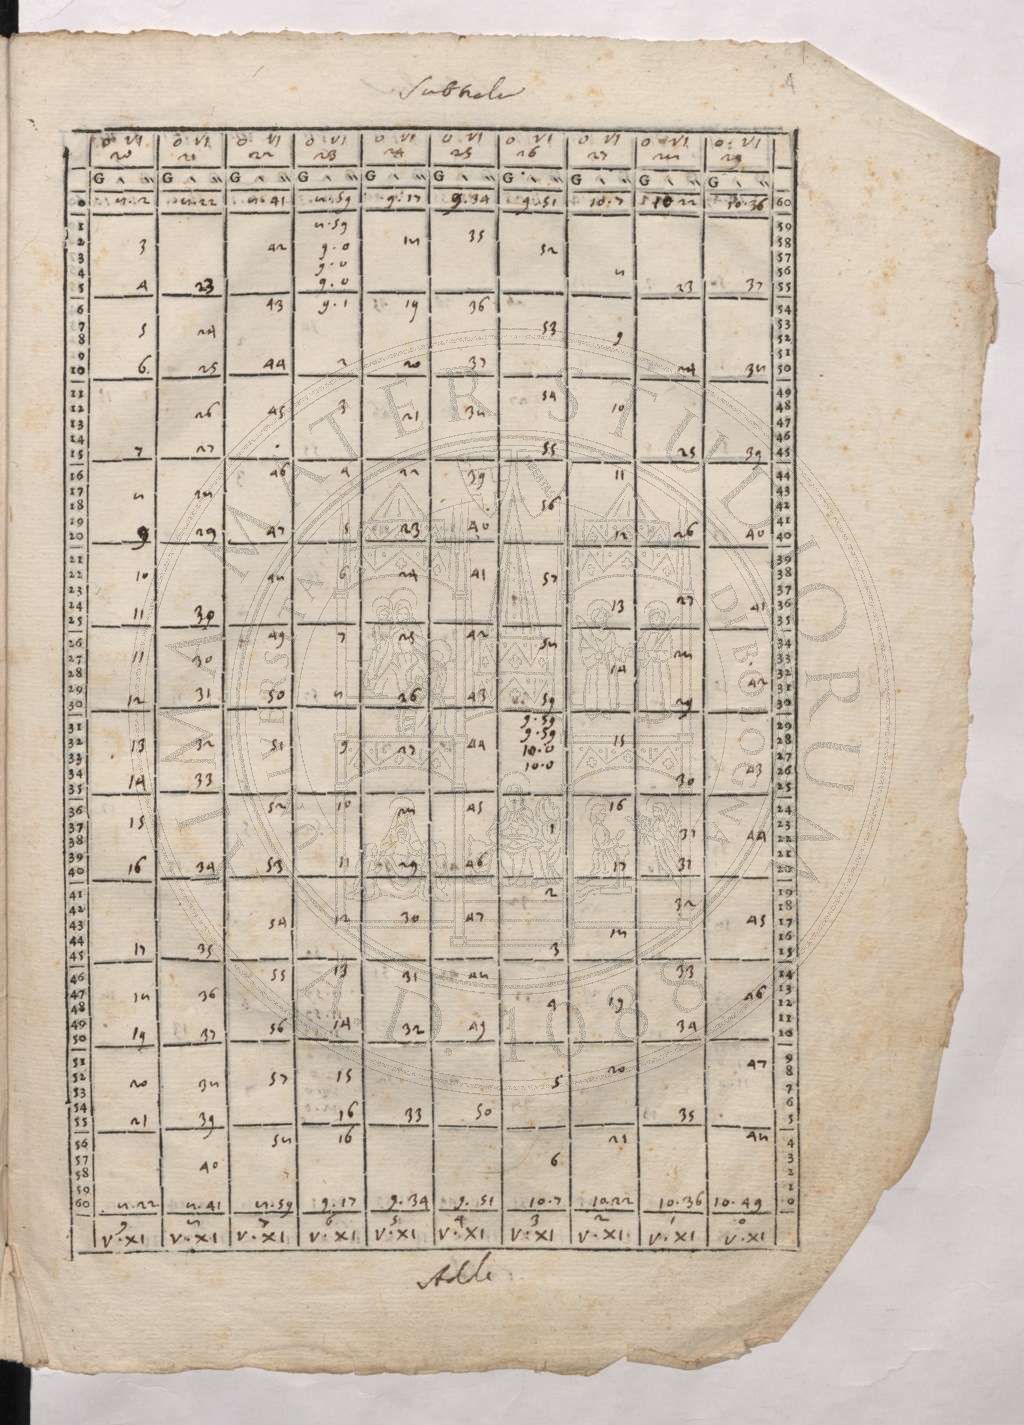 Subtrahe
4
0. VI 0. VI 0. VI 0. VI 0. VI 0. VI 0. VI 0. VI 0. VI 0. VI
20 21 22 23 24 25 26 27 28 29
G ' '' G ' '' G ' '' G ' '' G ' '' G ' '' G ' '' G ' '' G ' '' G ' ''
0 8.2 8.22 8.41 8.59 9.17 9.34 9.51 10.7 10.22 10.36 60
1 8.59 59
2 3 42 9.0 18 35 52 58
3 9.0 57
4 8 56
5 4 23 9.0 23 37 55
6 43 9.1 19 36 54
7 5 24 53 53
8 9 52
9 51
10 6 25 44 2 20 37 24 38 50
11 54 49
12 26 45 3 21 38 10 48
13 47
14 46
15 7 27 55 25 39 45
16 46 4 22 39 11 44
17 8 28 43
18 56 42
19 41
20 9 29 47 5 23 40 12 26 40 40
21 39
22 10 48 6 24 41 57 38
23 37
24 13 27 41 36
25 11 30 35
26 49 7 25 42 58 34
27 11 30 28 33
28 14 32
29 42 31
30 12 31 50 8 26 43 59 29 30
31 9.59 29
32 13 32 51 9 27 44 9.59 15 28
33 10.0 27
34 10.0 43 26
35 14 33 30 25
36 52 10 28 45 16 24
37 15 1 31 44 23
38 22
39 21
40 16 34 53 11 29 46 17 31 20
41 2 19
42 32 18
43 54 12 30 47 45 17
44 18 16
45 17 35 3 15
46 55 13 31 48 33 14
47 18 36 46 13
48 4 19 12
49 11
50 19 37 56 14 32 49 34 10
51 47 9
52 20 38 57 15 5 20 8
53 7
54 6
55 21 39 16 33 50 35 5
56 58 16 21 48 4
57 40 6 3
58 2
59 1
60 8.22 8.41 8.59 9.17 9.34 9.51 10.7 10.22 10.36 10.49 0
9 8 7 6 5 4 3 2 1 0
V.XI V.XI V.XI V.XI V.XI V.XI V.XI V.XI V.XI V.XI
Adde
ALMA MATER STUDIORUM
A.D. 1088